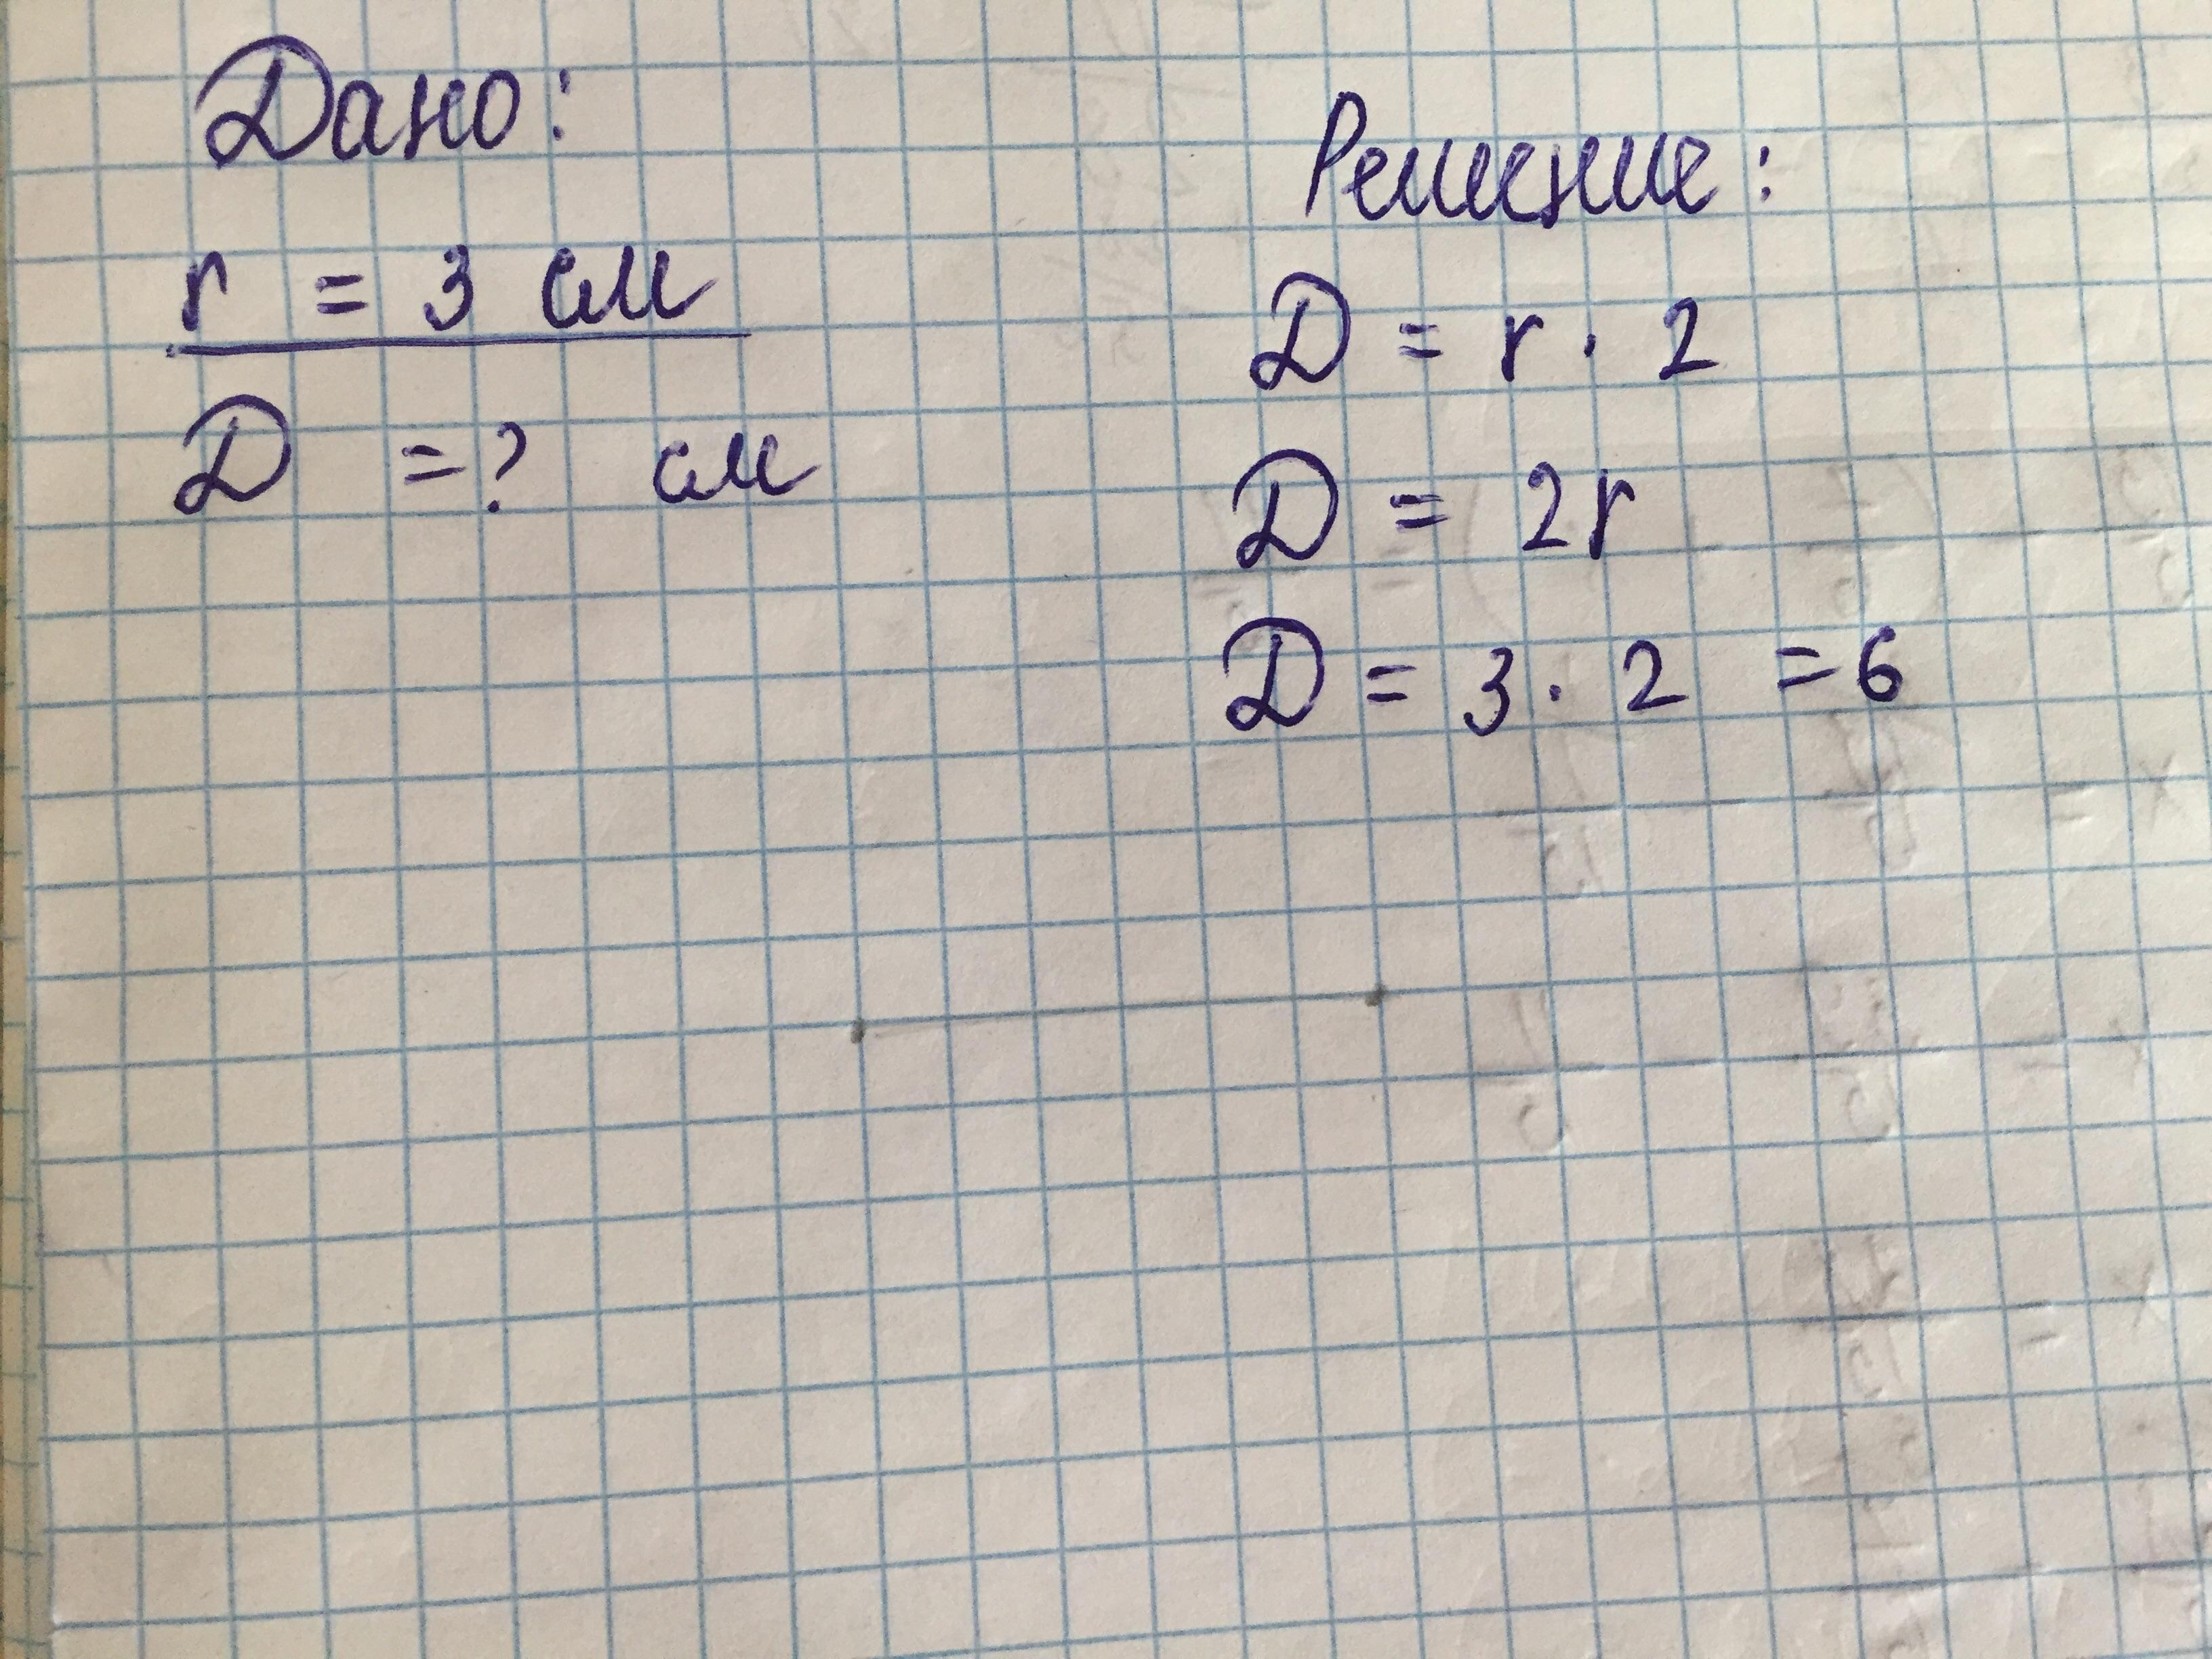 Дано:
r = 3 см
D = ? см
Решение:
D = r · 2
D = 2r
D = 3 · 2 = 6